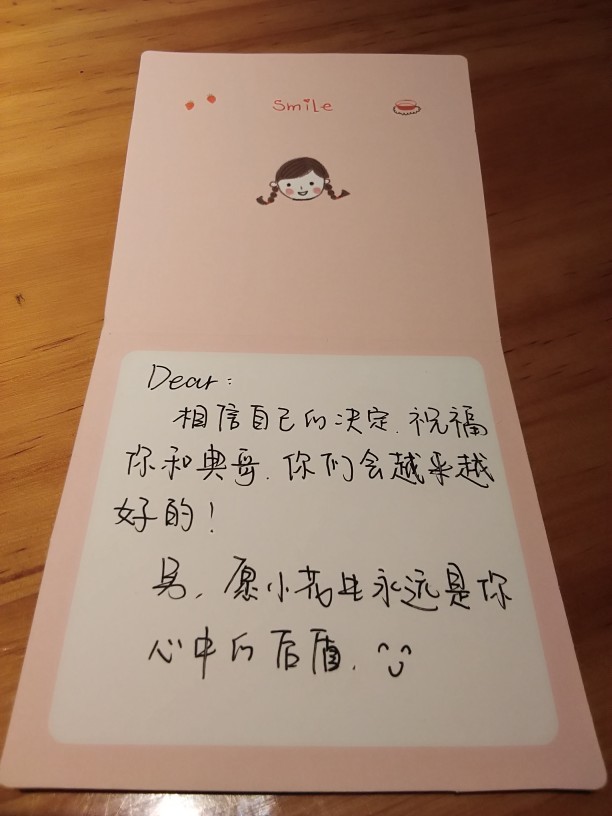 smile
Dear:
相信自己的决定.祝福
你和奥哥.你们会越来越
好的!
另,愿小花生永远是你
心中的后盾.